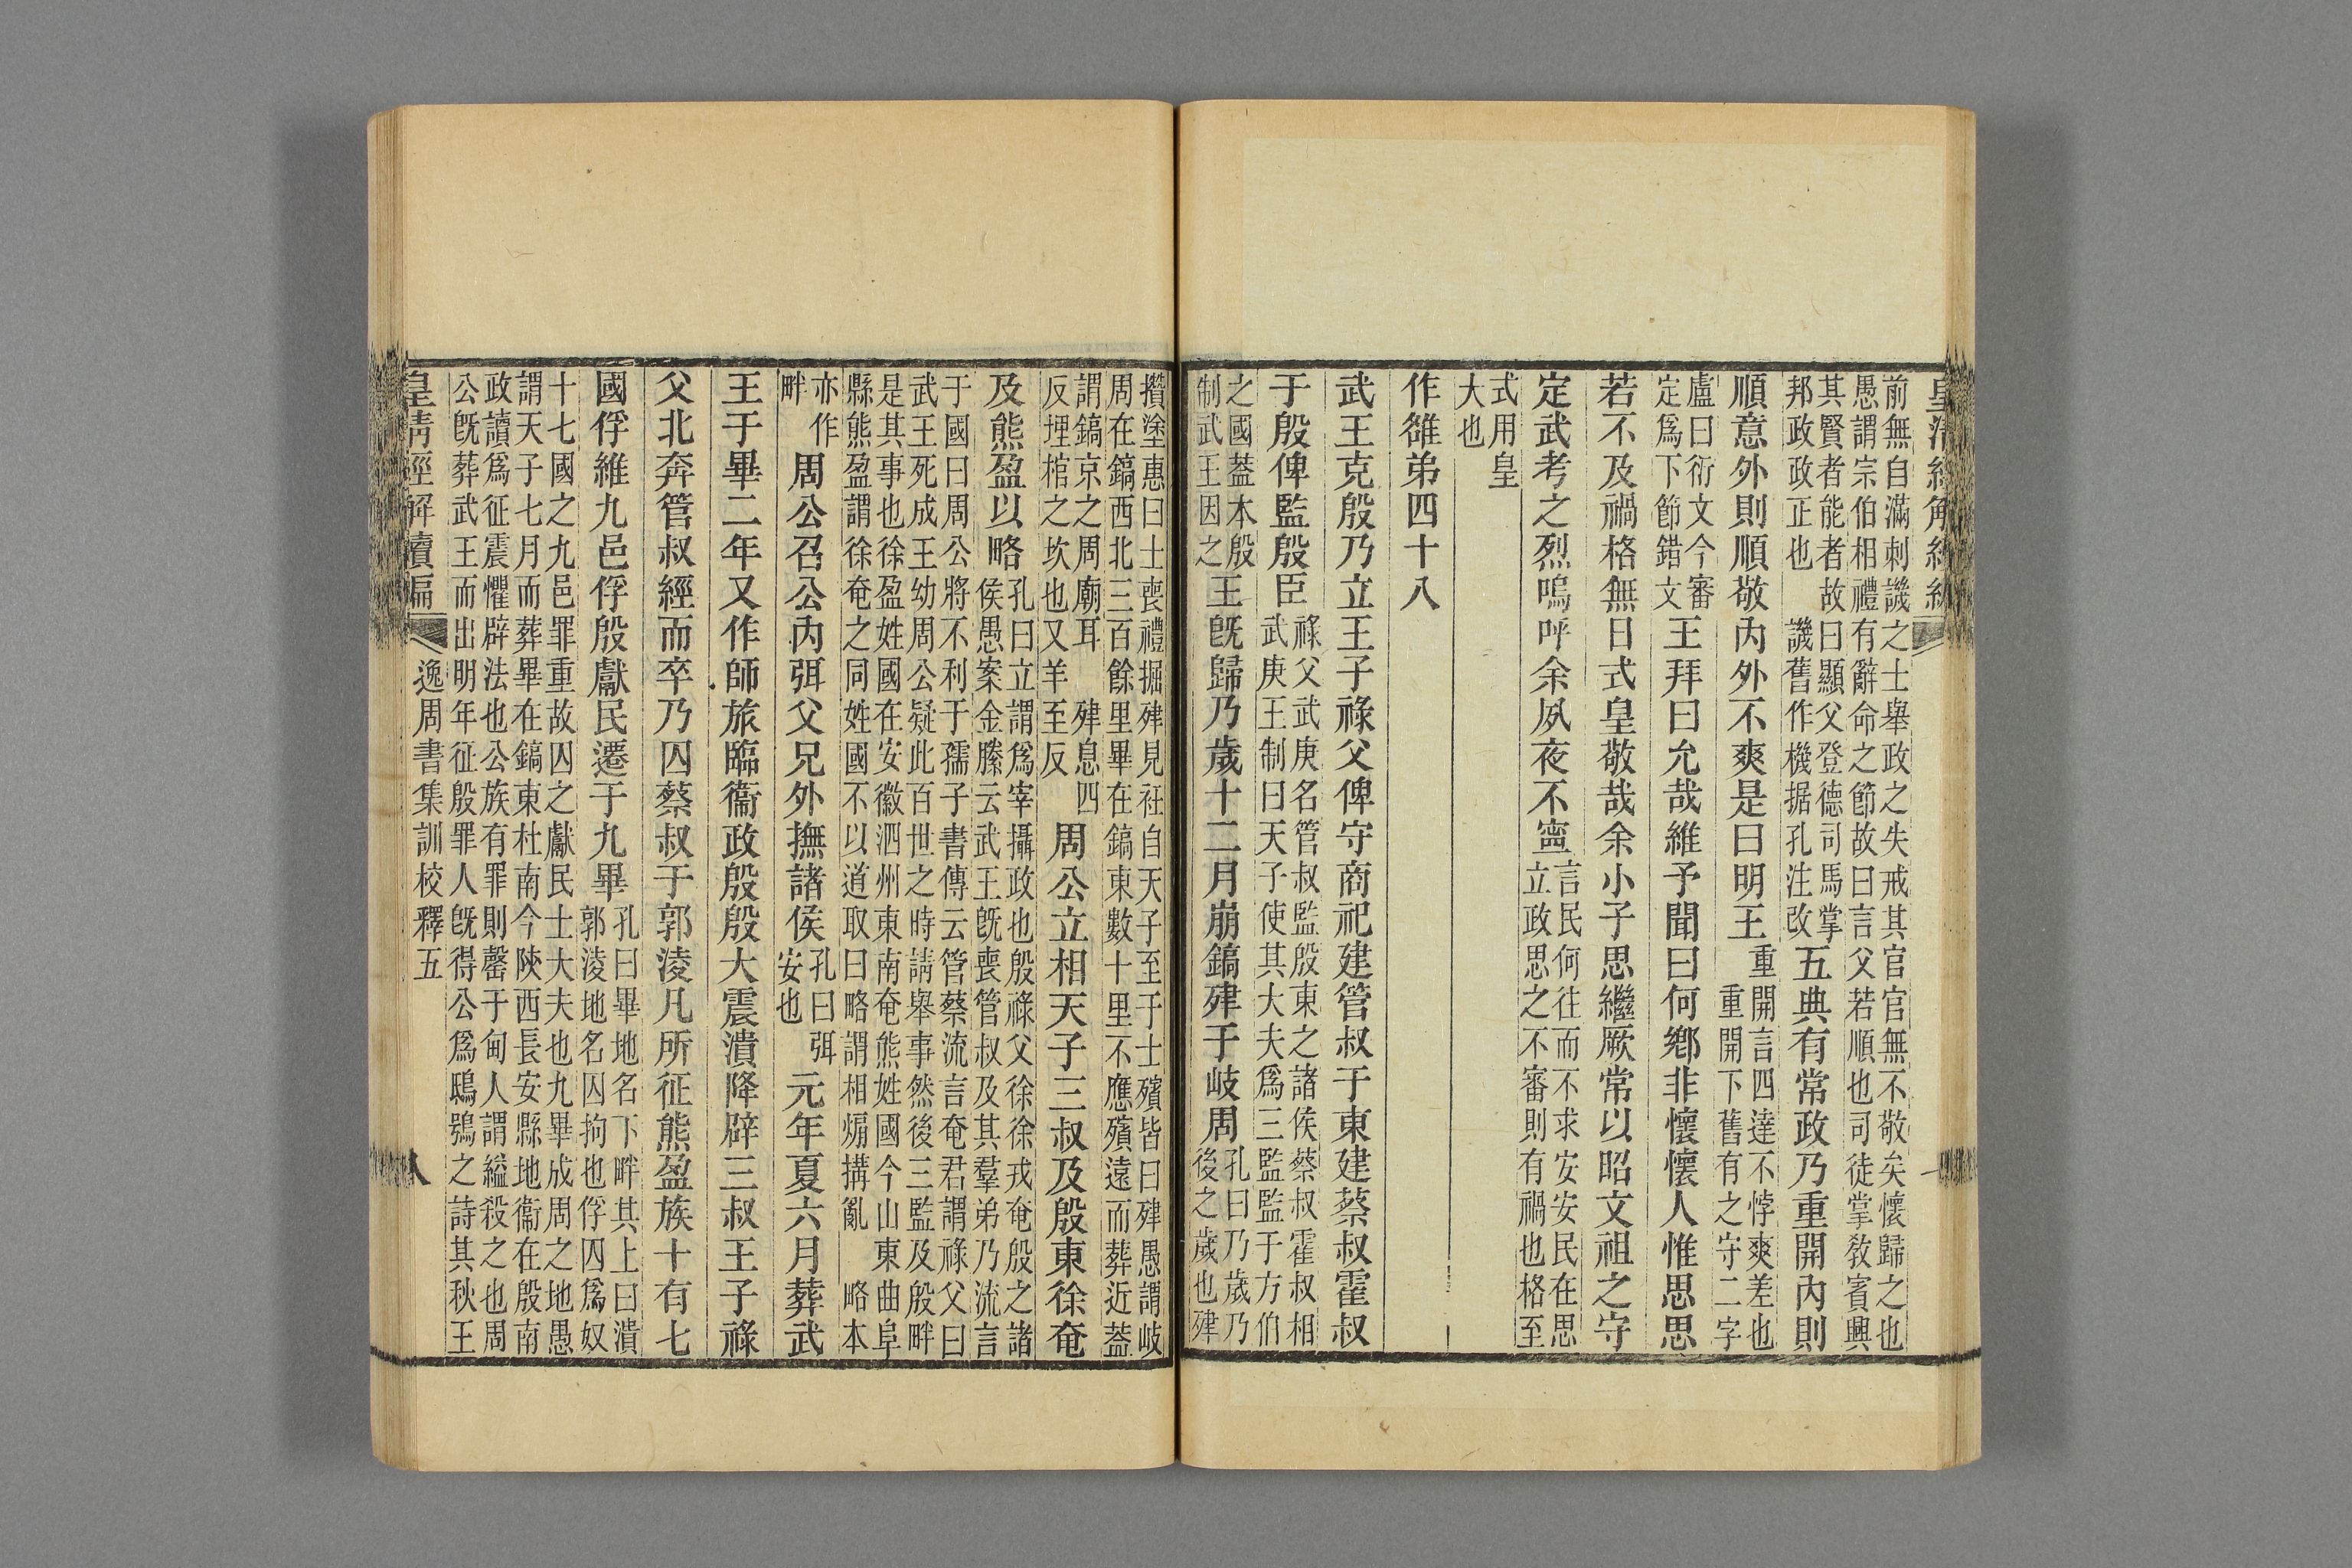 皇清經解續編
前無自滿刺譏之士舉政之失戒其官官無不敬矣懷歸之也
愚謂宗伯相禮有辭命之節故曰言父若順也司徒掌敎賓興
其賢者能者故曰顯父登德司馬掌
邦政政正也 譏舊作機据孔注改
五典有常政乃重開內則
順意外則順敬內外不爽是曰明王
重開言四達不悖爽差也
重開下舊有之守二字
盧曰衍文今審
定爲下節錯文
王拜曰允哉維予聞曰何鄕非懷懷人惟思思
若不及禍格無日式皇敬哉余小子思繼厥常以昭文祖之守
定武考之烈嗚呼余夙夜不寍
言民何往而不求安安民在思
立政思之不審則有禍也格至
式用皇
大也
作雒弟四十八
武王克殷乃立王子祿父俾守商祀建管叔于東建蔡叔霍叔
于殷俾監殷臣
祿父武庚名管叔監殷東之諸侯蔡叔霍叔相
武庚王制曰天子使其大夫爲三監監于方伯
之國葢本殷
制武王因之
王旣歸乃歲十二月崩鎬肂于岐周
孔曰乃歲乃
後之歲也肂
攢塗惠曰士喪禮掘肂見衽自天子至于士殯皆曰肂愚謂岐
周在鎬西北三百餘里畢在鎬東數十里不應殯遠而葬近葢
謂鎬京之周廟耳 肂息四
反埋棺之坎也又羊至反
周公立相天子三叔及殷東徐奄
及熊盈以略
孔曰立謂爲宰攝政也殷祿父徐徐戎奄殷之諸
侯愚案金縢云武王旣喪管叔及其羣弟乃流言
于國曰周公將不利于孺子書傳云管蔡流言奄君謂祿父曰
武王死成王幼周公疑此百世之時請舉事然後三監及殷畔
是其事也徐盈姓國在安徽泗州東南奄熊姓國今山東曲阜
縣熊盈謂徐奄之同姓國不以道取曰略謂相煽搆亂 略本
亦作
畔
周公召公內弭父兄外撫諸侯
孔曰弭
安也
元年夏六月葬武
王于畢二年又作師旅臨衞政殷殷大震潰降辟三叔王子祿
父北奔管叔經而卒乃囚蔡叔于郭淩凡所征熊盈族十有七
國俘維九邑俘殷獻民遷于九畢
孔曰畢地名下畔其上曰潰
郭淩地名囚拘也俘囚爲奴
十七國之九邑罪重故囚之獻民士大夫也九畢成周之地愚
謂天子七月而葬畢在鎬東杜南今陝西長安縣地衞在殷南
政讀爲征震懼辟法也公族有罪則罄于甸人謂縊殺之也周
公旣葬武王而出明年征殷罪人旣得公爲鴟鴞之詩其秋王
皇清經解續編 逸周書集訓校釋五 八